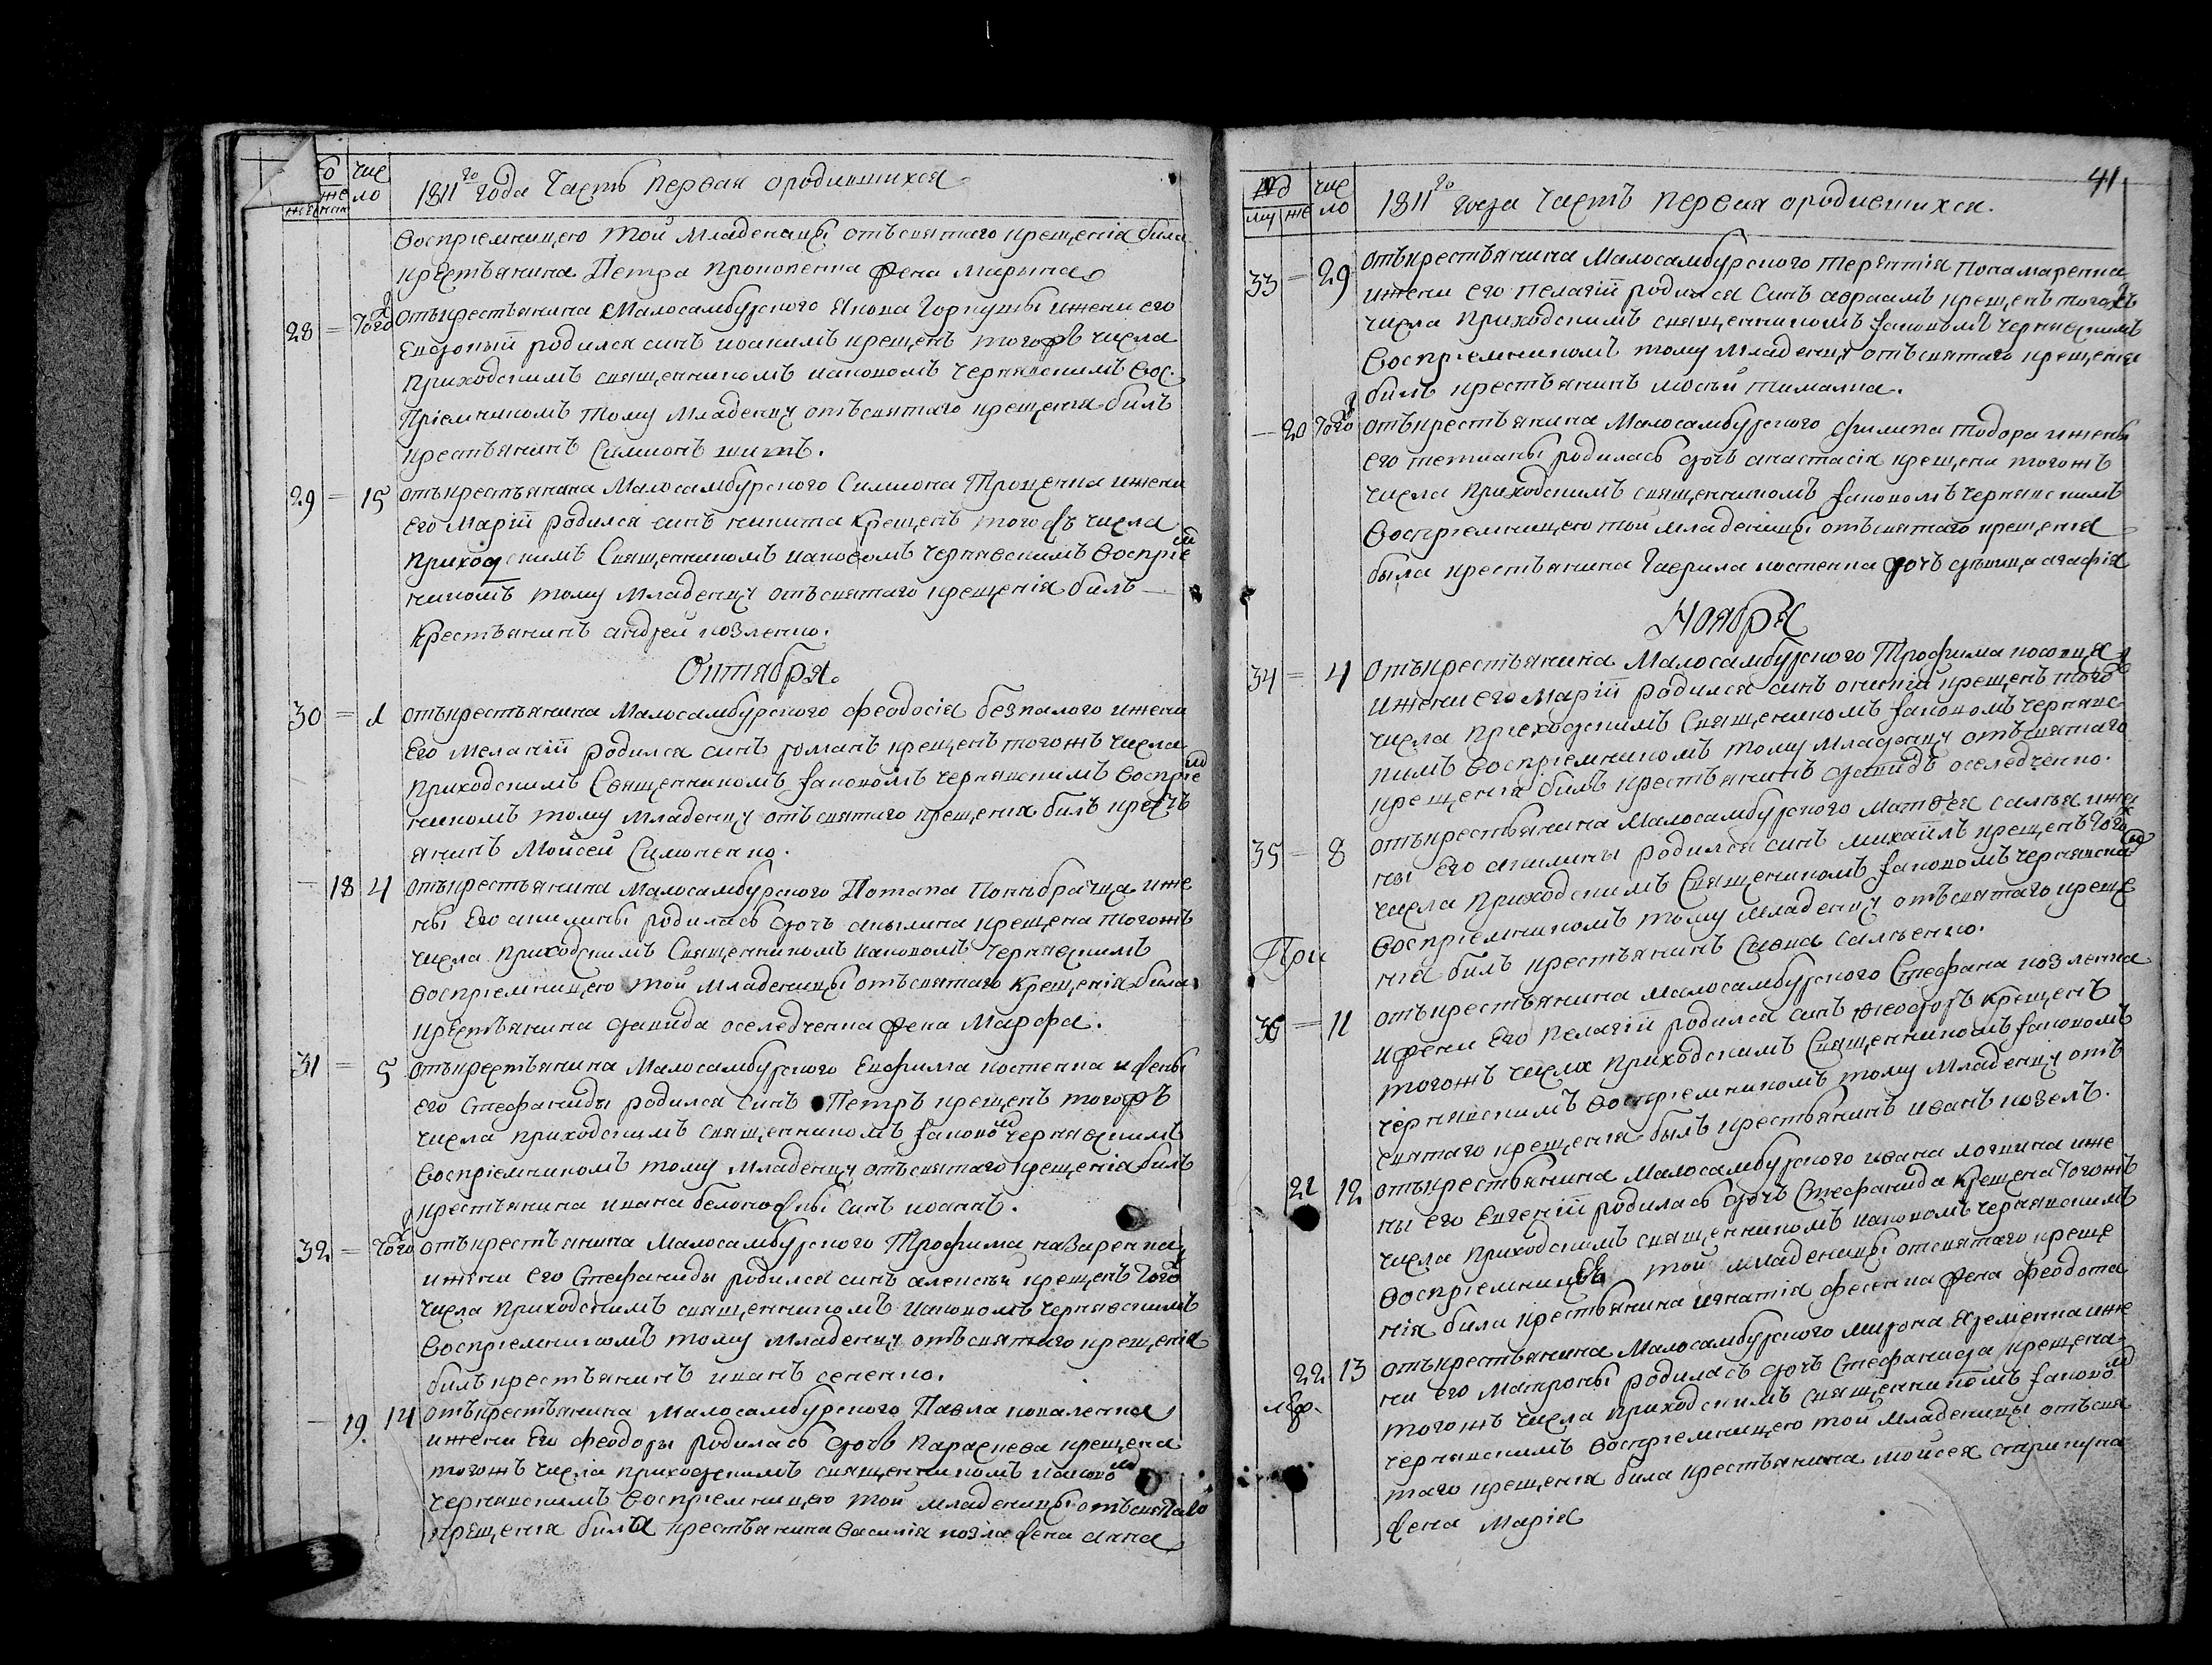 чис
же ло
1811го года Часть Первая ородившихся
Воспріемницею той младеници отъ святаго крещенія била
крестьянина Петра Прокопенка жена Марина
28 = Того ж отъ крестьянина Малосамбурского Якова Горкуши и жени его
Евдокіи родился синъ иоакимъ крещенъ того жъ числа
приходскимъ священникомъ иаковомъ Чернявскимъ Вос-
пріемникомъ тому младенцу отъ святаго крещенія билъ
крестьянинъ Симионъ шитъ.
29 = 15 отъ крестьянина Малосамбурского Симиона Троценка и жени
его Маріи родился синъ никита крещенъ того жъ числа
приходскимъ Священникомъ иаковомъ Чернявскимъ Воспріем
никомъ тому младенцу отъ святаго крещенія билъ
Крестьянинъ андрей козленко.
Октября.
30 = 1 отъ крестьянина Малосамбурского феодосія безпалого и жени
его Меланіи родился синъ романъ крещенъ тогожъ числа
приходскимъ Священникомъ Іаковомъ Чернявскимъ Воспріем
никомъ тому младенцу отъ святаго крещенія билъ крест
янинъ Мойсей Симоненко.
— 18 4 отъ крестьянина Малосамбурского Потапа и же
ны его акилины родилась дочь акылина крещена тогожъ
числа приходскимъ Священникомъ иаковомъ Чернявскимъ
воспріемницею той младеници отъ святаго крещенія била
крестьянина давида оселедченка жена Марфа.
31 = 5 отъ крестьянина Малосамбурского Евфима костенка и жены
его Стефаниды родился Синъ Петръ крещенъ того жъ
числа приходскимъ священникомъ Іаковомъ Чернявскимъ
Воспріемникомъ тому младенцу отъ святаго крещенія билъ
крестьянина ивана белоножки синъ иоаннъ.
32 = Того ж отъ крестьянина Малосамбурского Трофима назаренка
и жени его Стефаниды родился синъ алексѣй крещенъ Того ж
числа приходскимъ священникомъ Иаковомъ Чернявскимъ
Воспріемникомъ тому младенцу отъ святаго крещенія
билъ крестьянинъ иванъ сененко.
— 19 14 отъ крестьянина Малосамбурского Павла коваленка
и жени его феодоры родилась дочь Параскева крещена
тогожъ числа приходскимъ священникомъ иаковом
Чернявскимъ Воспріемницею той младеници отъ святаго
крещенія била крестьянина Василія козла жена анна
41
чис
му же ло
1811го года Часть Первая ородившихся.
33 = 29 отъ крестьянина Малосамбурского терентія понамаренка
и жени его пелагіи родился синъ авраамъ крещенъ того жъ
числа приходскимъ священникомъ Іаковомъ Чернявскимъ
Воспріемникомъ тому младенцу отъ святаго крещенія
билъ крестьянинъ мосѣй тималка.
— 20 Того ж отъ крестьянина Малосамбурского филипа тодора и жены
его тетианы родилась дочь анастасія крещена тогожъ
числа приходскимъ священникомъ Іаковомъ Чернявскимъ
Воспріемницею той младеници отъ святаго крещенія
была крестьянина Гаврила костенка дочь дѣвица агафія
Ноября
34 = 4 отъ крестьянина Малосамбурского Трофима
и жени его Маріи родился синъ крещенъ того ж
числа приходскимъ Священникомъ Іаковомъ Чернявс
кимъ воспріемникомъ тому младенцу отъ святаго
крещенія билъ крестьянинъ давидъ оселедченко.
35 = 8 отъ крестьянина Малосамбурского Матвѣя и же
ны его акилины родился синъ михаилъ крещенъ Того ж
числа приходскимъ Священникомъ Іаковомъ Чернявским
Воспріемникомъ тому младенцу отъ святаго креще
При нія билъ крестьянинъ Савка
36 = 11 отъ крестьянина Малосамбурского Стефана козленка
и жени его Пелагіи родился синъ феодоръ крещенъ
тогожъ числа приходскимъ Священникомъ Іаковомъ
Чернявскимъ Воспріемникомъ тому младенцу отъ
святаго крещенія былъ крестьянинъ иванъ козелъ.
21 12 отъ крестьянина Малосамбурского ивана логвина и же
ны его Евгеніи родилась дочь Стефанида крещена Тогожъ
числа приходскимъ священникомъ иаковомъ Чернявскимъ
Воспріемницею той младеници от святаго креще
нія била крестьянина игнатія фесенка жена феодота
22 13 отъ крестьянина Малосамбурского мирона Яреміенка и же
ни его Матроны родилась дочь Стефанида крещена
тогожъ числа приходскимъ священникомъ Іаковом
Чернявскимъ Воспріемницею той младеницы отъ свя
таго крещенія била крестьянина мойсея
жена Марія